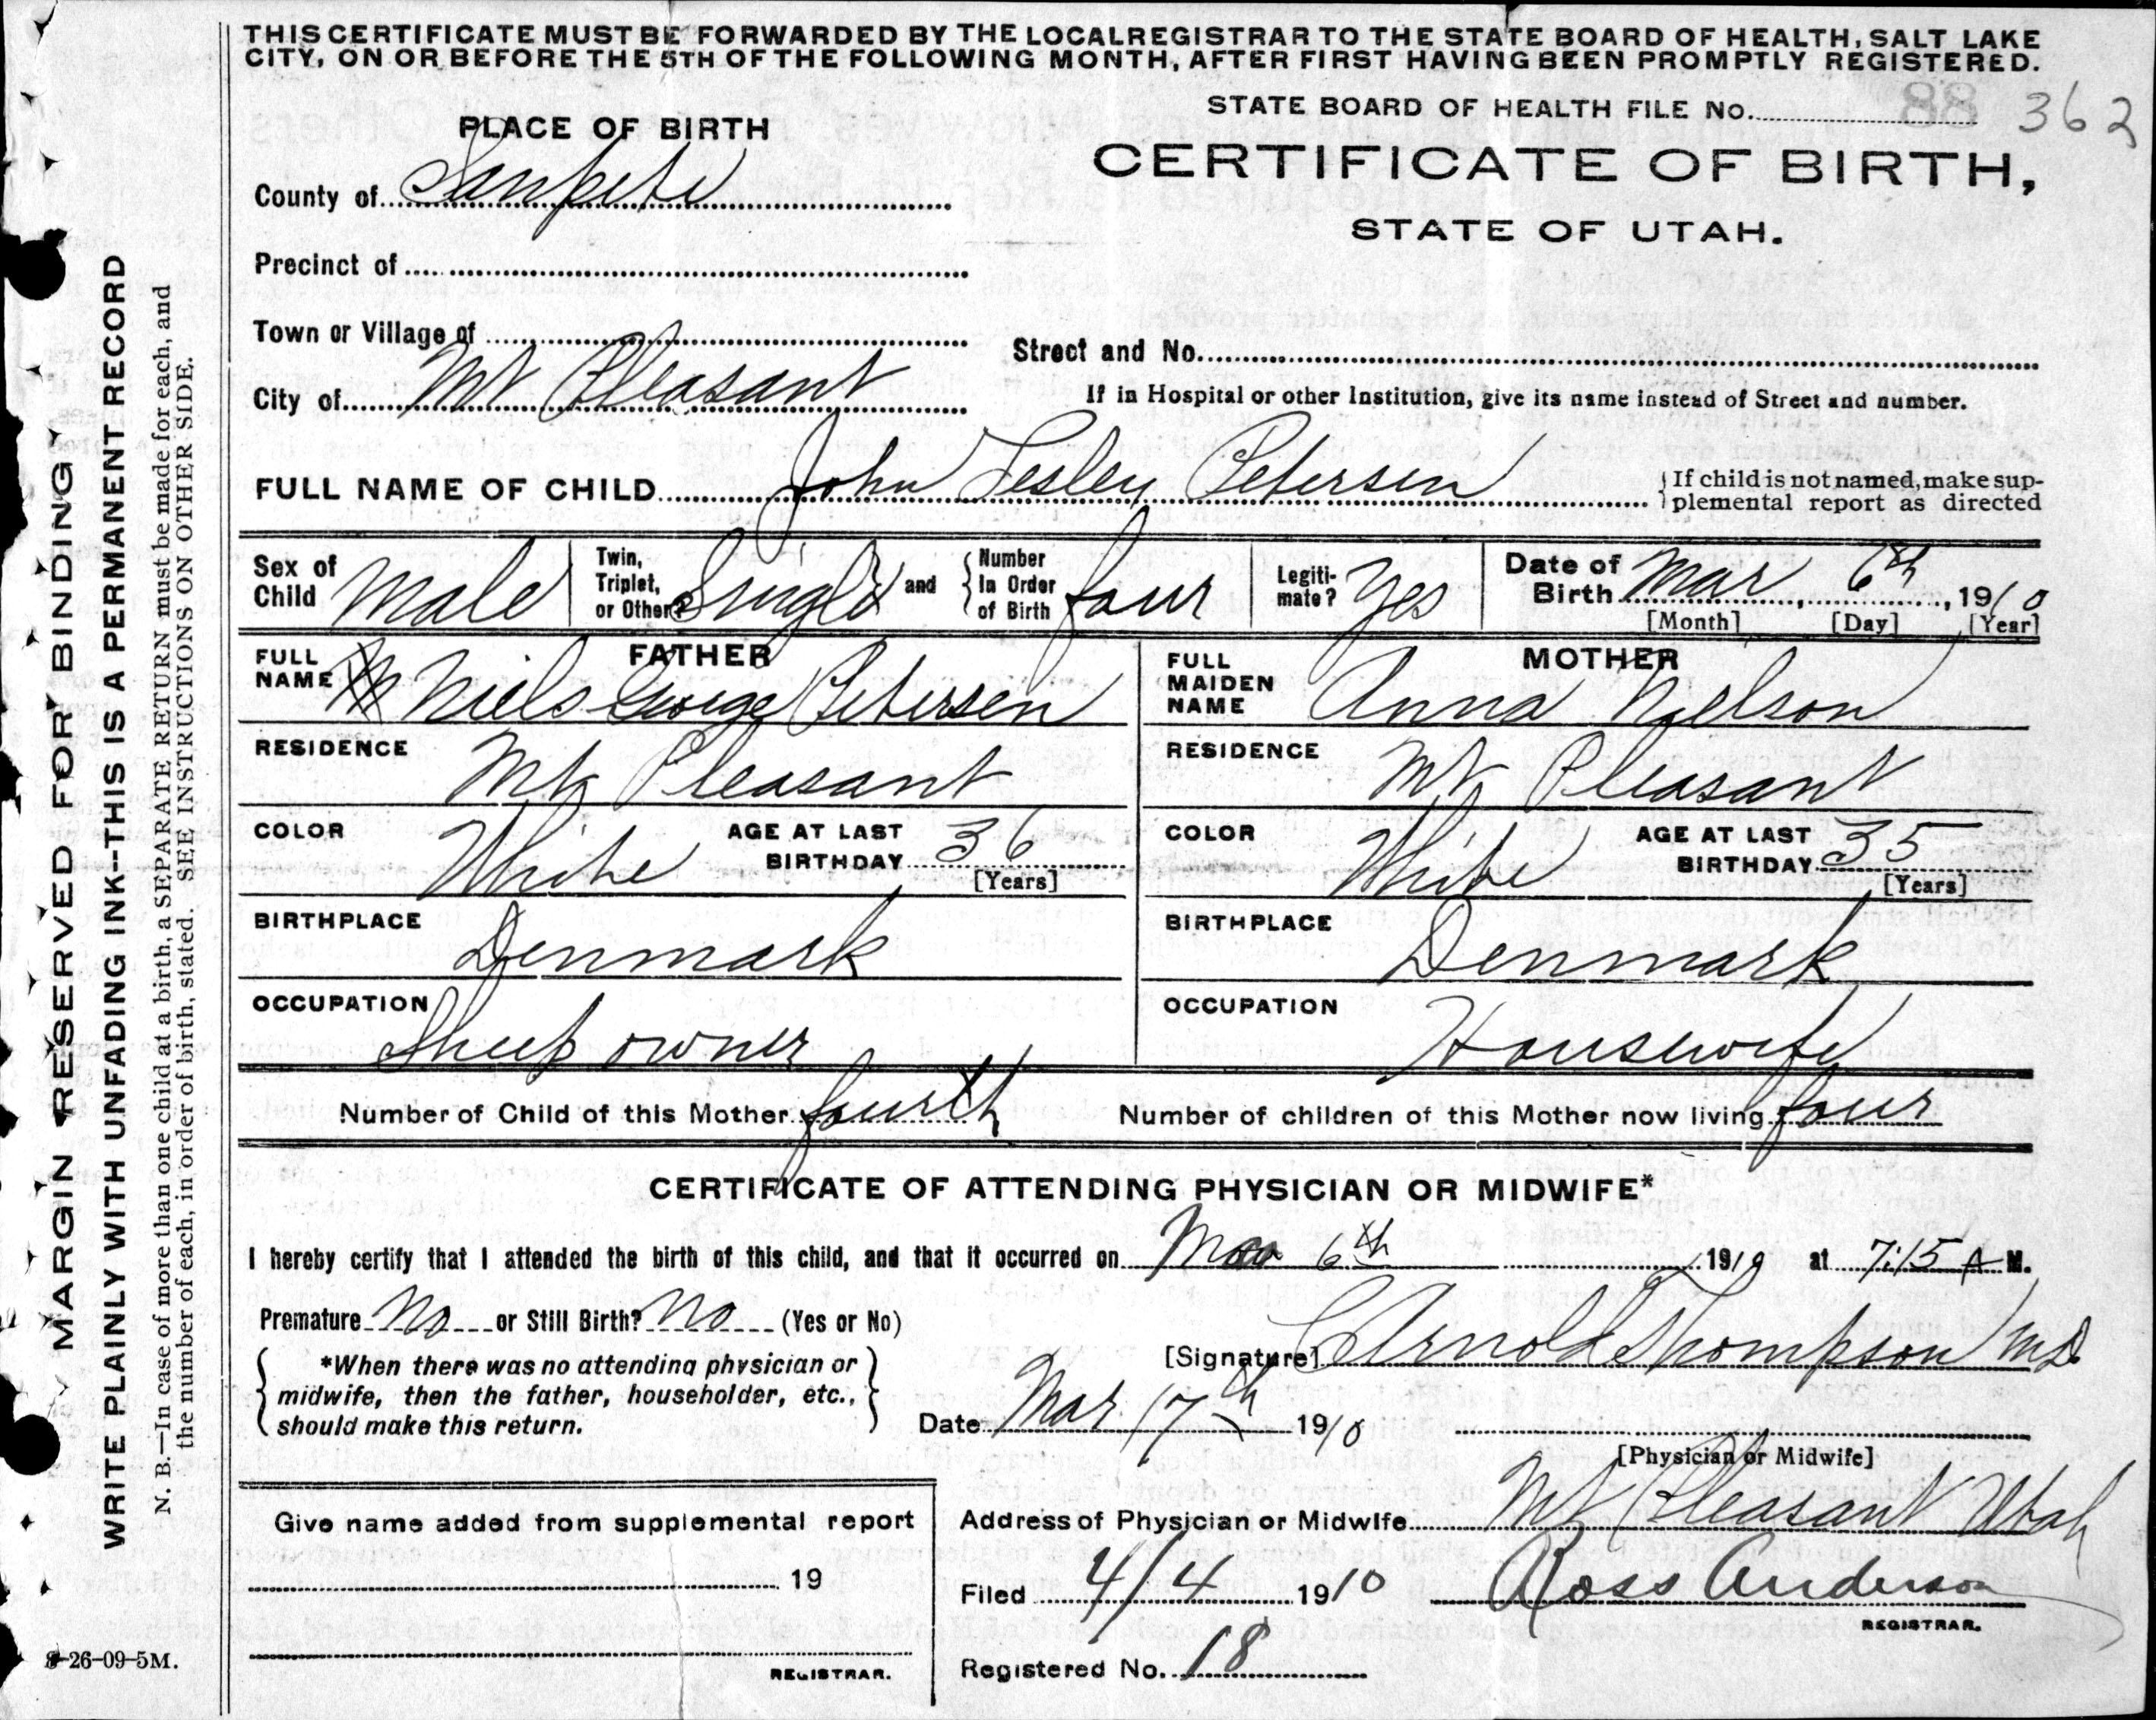 THIS CERTIFICATE MUST BE FORWARDED BY THE LOCAL REGISTRAR TO THE STATE BOARD OF HEALTH, SALT LAKE
CITY, ON OR BEFORE THE 5TH OF THE FOLLOWING MONTH, AFTER FIRST HAVING BEEN PROMPTLY REGISTERED.
STATE BOARD OF HEALTH FILE No. 88 362
PLACE OF BIRTH
CERTIFICATE OF BIRTH,
STATE OF UTAH.
County of Sanpete
Precinct of
Town or Village of
Street and No.
City of Mt Pleasant
If in Hospital or other Institution, give its name instead of Street and number.
FULL NAME OF CHILD John Lesley Petersen
If child is not named, make sup-
plemental report as directed
Sex of Child Male
Twin, Triplet, or Other? Single
and Number In Order of Birth four
Legiti-mate? Yes
Date of Birth Mar 6th, 1910
[Month] [Day] [Year]
FATHER
FULL NAME Niels George Petersen
MOTHER
FULL MAIDEN NAME Anna Nielson
RESIDENCE Mt Pleasant
RESIDENCE Mt Pleasant
COLOR White AGE AT LAST BIRTHDAY 36
[Years]
COLOR White AGE AT LAST BIRTHDAY 35
[Years]
BIRTHPLACE Denmark
BIRTHPLACE Denmark
OCCUPATION Sheep owner
OCCUPATION Housewife
Number of Child of this Mother fourth
Number of children of this Mother now living four
CERTIFICATE OF ATTENDING PHYSICIAN OR MIDWIFE*
I hereby certify that I attended the birth of this child, and that it occurred on Mar 6th 1910 at 7:15 A M.
Premature No or Still Birth? No (Yes or No)
*When there was no attending physician or
midwife, then the father, householder, etc.,
should make this return.
[Signature] Arnold Thompson MD.
Date Mar 17th 1910
[Physician or Midwife]
Give name added from supplemental report
19
REGISTRAR.
Address of Physician or Midwife Mt Pleasant Utah
Filed 4/4 1910 Ross Anderson
REGISTRAR.
Registered No. 18
8-26-09-5M.
MARGIN RESERVED FOR BINDING
WRITE PLAINLY WITH UNFADING INK--THIS IS A PERMANENT RECORD
N. B.—In case of more than one child at a birth, a SEPARATE RETURN must be made for each, and
the number of each, in order of birth, stated. SEE INSTRUCTIONS ON OTHER SIDE.